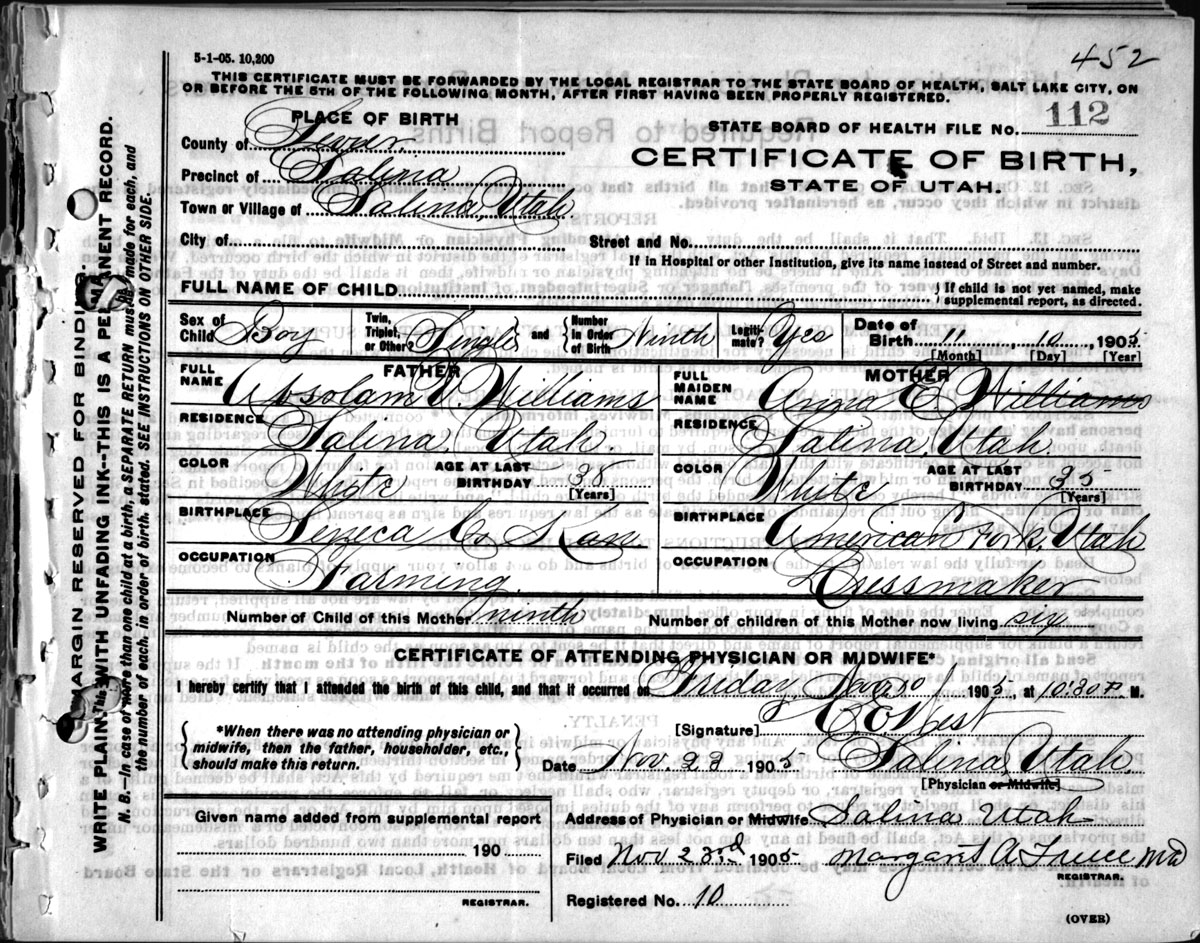 5-1-05. 10,200
452
THIS CERTIFICATE MUST BE FORWARDED BY THE LOCAL REGISTRAR TO THE STATE BOARD OF HEALTH, SALT LAKE CITY, ON
OR BEFORE THE 5TH OF THE FOLLOWING MONTH, AFTER FIRST HAVING BEEN PROPERLY REGISTERED.
PLACE OF BIRTH
County of Sevier.
Precinct of Salina
Town or Village of Salina Utah
City of
STATE BOARD OF HEALTH FILE NO. 112
CERTIFICATE OF BIRTH,
STATE OF UTAH.
Street and No.
If in Hospital or other Institution, give its name instead of Street and number.
FULL NAME OF CHILD
If child is not yet named, make
supplemental report, as directed.
Sex of Child Boy
Twin, Triplet, or Other? Single and Number in Order of Birth Ninth
Legiti-mate? Yes
Date of Birth 11, 10, 1905
[Month] [Day] [Year]
FATHER
FULL NAME Absolam Williams
RESIDENCE Salina, Utah.
COLOR White AGE AT LAST BIRTHDAY 38
[Years]
BIRTHPLACE Seneca Co Kan.
OCCUPATION Farming
MOTHER
FULL MAIDEN NAME Anna E Williams
RESIDENCE Salina, Utah.
COLOR White AGE AT LAST BIRTHDAY
[Years]
BIRTHPLACE American Fork, Utah
OCCUPATION Dressmaker
Number of Child of this Mother ninth
Number of children of this Mother now living six
CERTIFICATE OF ATTENDING PHYSICIAN OR MIDWIFE*
I hereby certify that I attended the birth of this child, and that it occurred on Friday, Nov 10 1905, at 10:30 P. M.
*When there was no attending physician or
midwife, then the Father, householder, etc.,
should make this return.
[Signature] West
Date Nov 22 1905 Salina, Utah.
[Physician or Midwife]
Given name added from supplemental report
190
REGISTRAR.
Address of Physician or Midwife Salina Utah
Filed Nov 23rd 1905 Margaret A MD
REGISTRAR.
Registered No. 10
(OVER)
MARGIN RESERVED FOR BINDING.
WRITE PLAINLY WITH UNFADING INK--THIS IS A PERMANENT RECORD.
N. B.--In case of more than one child at a birth, a SEPARATE RETURN must be made for each, and
the number of each, in order of birth, stated. SEE INSTRUCTIONS ON OTHER SIDE.